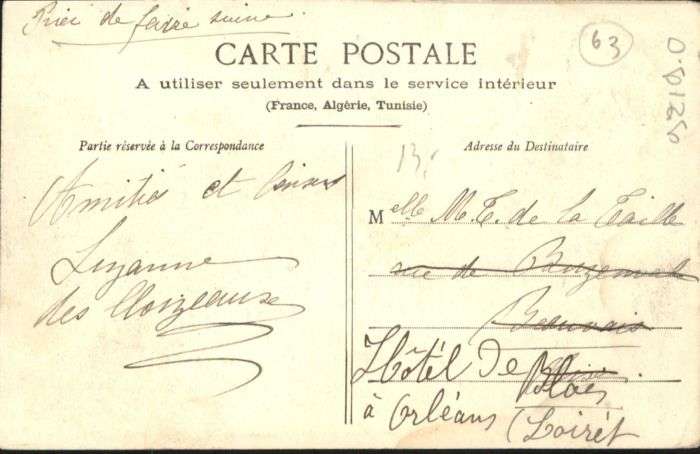 Prière de faire suivre
63
0.81250
CARTE POSTALE
A utiliser seulement dans le service intérieur
(France, Algérie, Tunisie)
Partie réservée à la Correspondance
Adresse du Destinataire
13,
Amitiés et
Suzanne
des Cloizeaux
Melle M. T. de la Taille
rue de
Beauvais
Hôtel De Blois
à Orléans
(Loiret